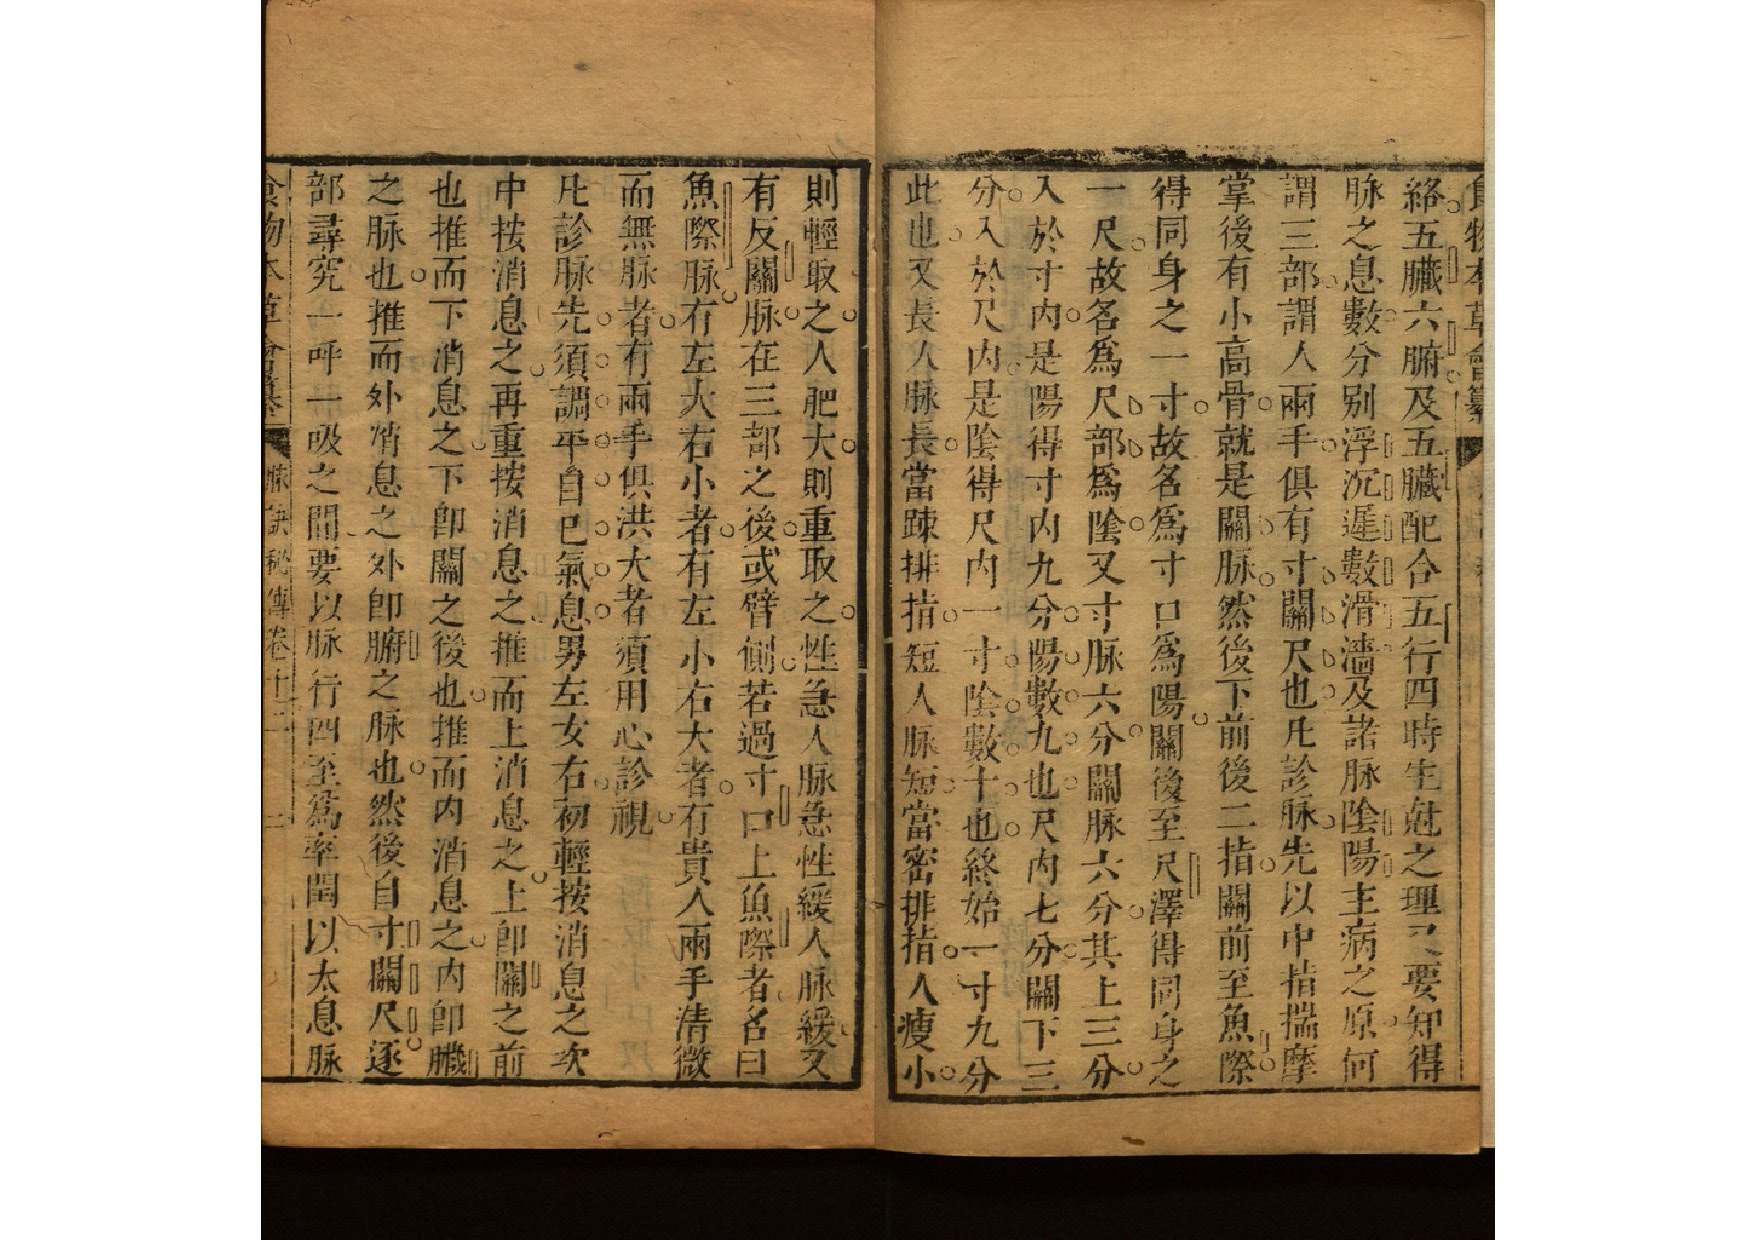 食物本草會纂
絡五臟六腑及五臟配合五行四時生尅之理又要知得
脉之息數分别浮沉遲數滑濇及諸脉陰陽主病之原何
謂三部謂人兩手俱有寸關尺也凢診脉先以中指揣摩
掌後有小高骨就是關脉然後下前後二指關前至魚際
得同身之一寸故名爲寸口爲陽關後至尺澤得同身之
一尺故名爲尺部爲陰又寸脉六分關脉六分其上三分
入於寸內是陽得寸內九分陽數九也尺內七分關下三
分入於尺內是陰得尺內一寸陰數十也終始一寸九分
此也又長人脉長當踈排指短人脉短當密排指人瘦小
則輕取之人肥大則重取之性急人脉急性緩人脉緩又
有反關脉在三部之後或臂側若過寸口上魚際者名曰
魚際脉有左大右小者有左小右大者有貴人兩手清微
而無脉者有兩手俱洪大者須用心診視
凢診脉先須調平自已氣息男左女右初輕按消息之次
中按消息之再重按消息之推而上消息之上卽關之前
也推而下消息之下卽關之後也推而內消息之內卽臟
之脉也推而外消息之外卽腑之脉也然後自寸關尺逐
部尋究一呼一吸之間要以脉行四至爲率閏以太息脉
食物本草會纂 脉訣秘傳卷十二 二